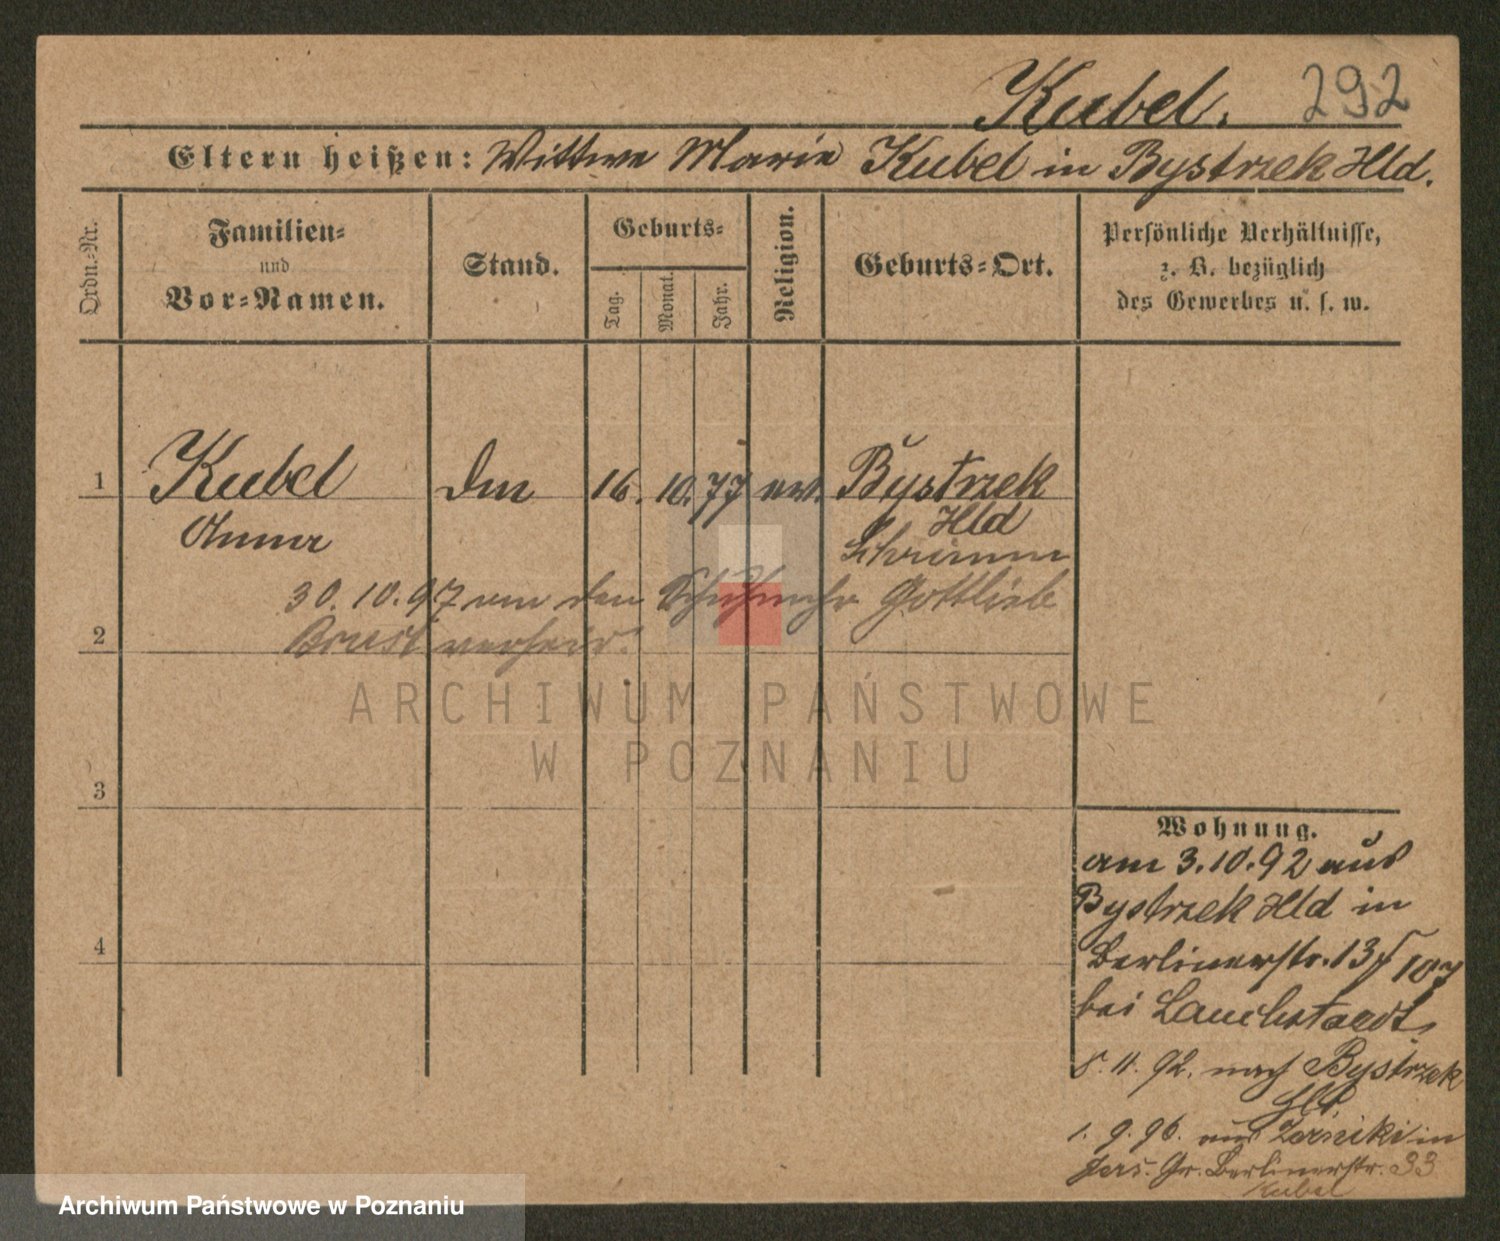 Kubel. 292
Eltern heißen: Wittwe Marie Kubel in Bystrzek Hld.
Ordn.-Nr.
Familien-
und
Vor-Namen.
Stand.
Geburts-
Tag.
Monat.
Jahr.
Religion.
Geburts-Ort.
Persönliche Verhältnisse,
z. B. bezüglich
des Gewerbes u. s. w.
1 Kubel 16. 10. 77 ev. Bystrzek
Anna Hld
Schrimm
30. 10. 97 an den Gottlieb
2 verheir.
ARCHIWUM PAŃSTWOWE
W POZNANIU
3
Wohnung.
am 3.10.92 aus
Bystrzek Hld in
4 Berlinerstr. 13
bei
8. 11. 92. nach Bystrzek
Hld.
1. 9. 96. aus Zerniki in
Jers. Gr. Berlinerstr. 33
Kubel
Archiwum Państwowe w Poznaniu